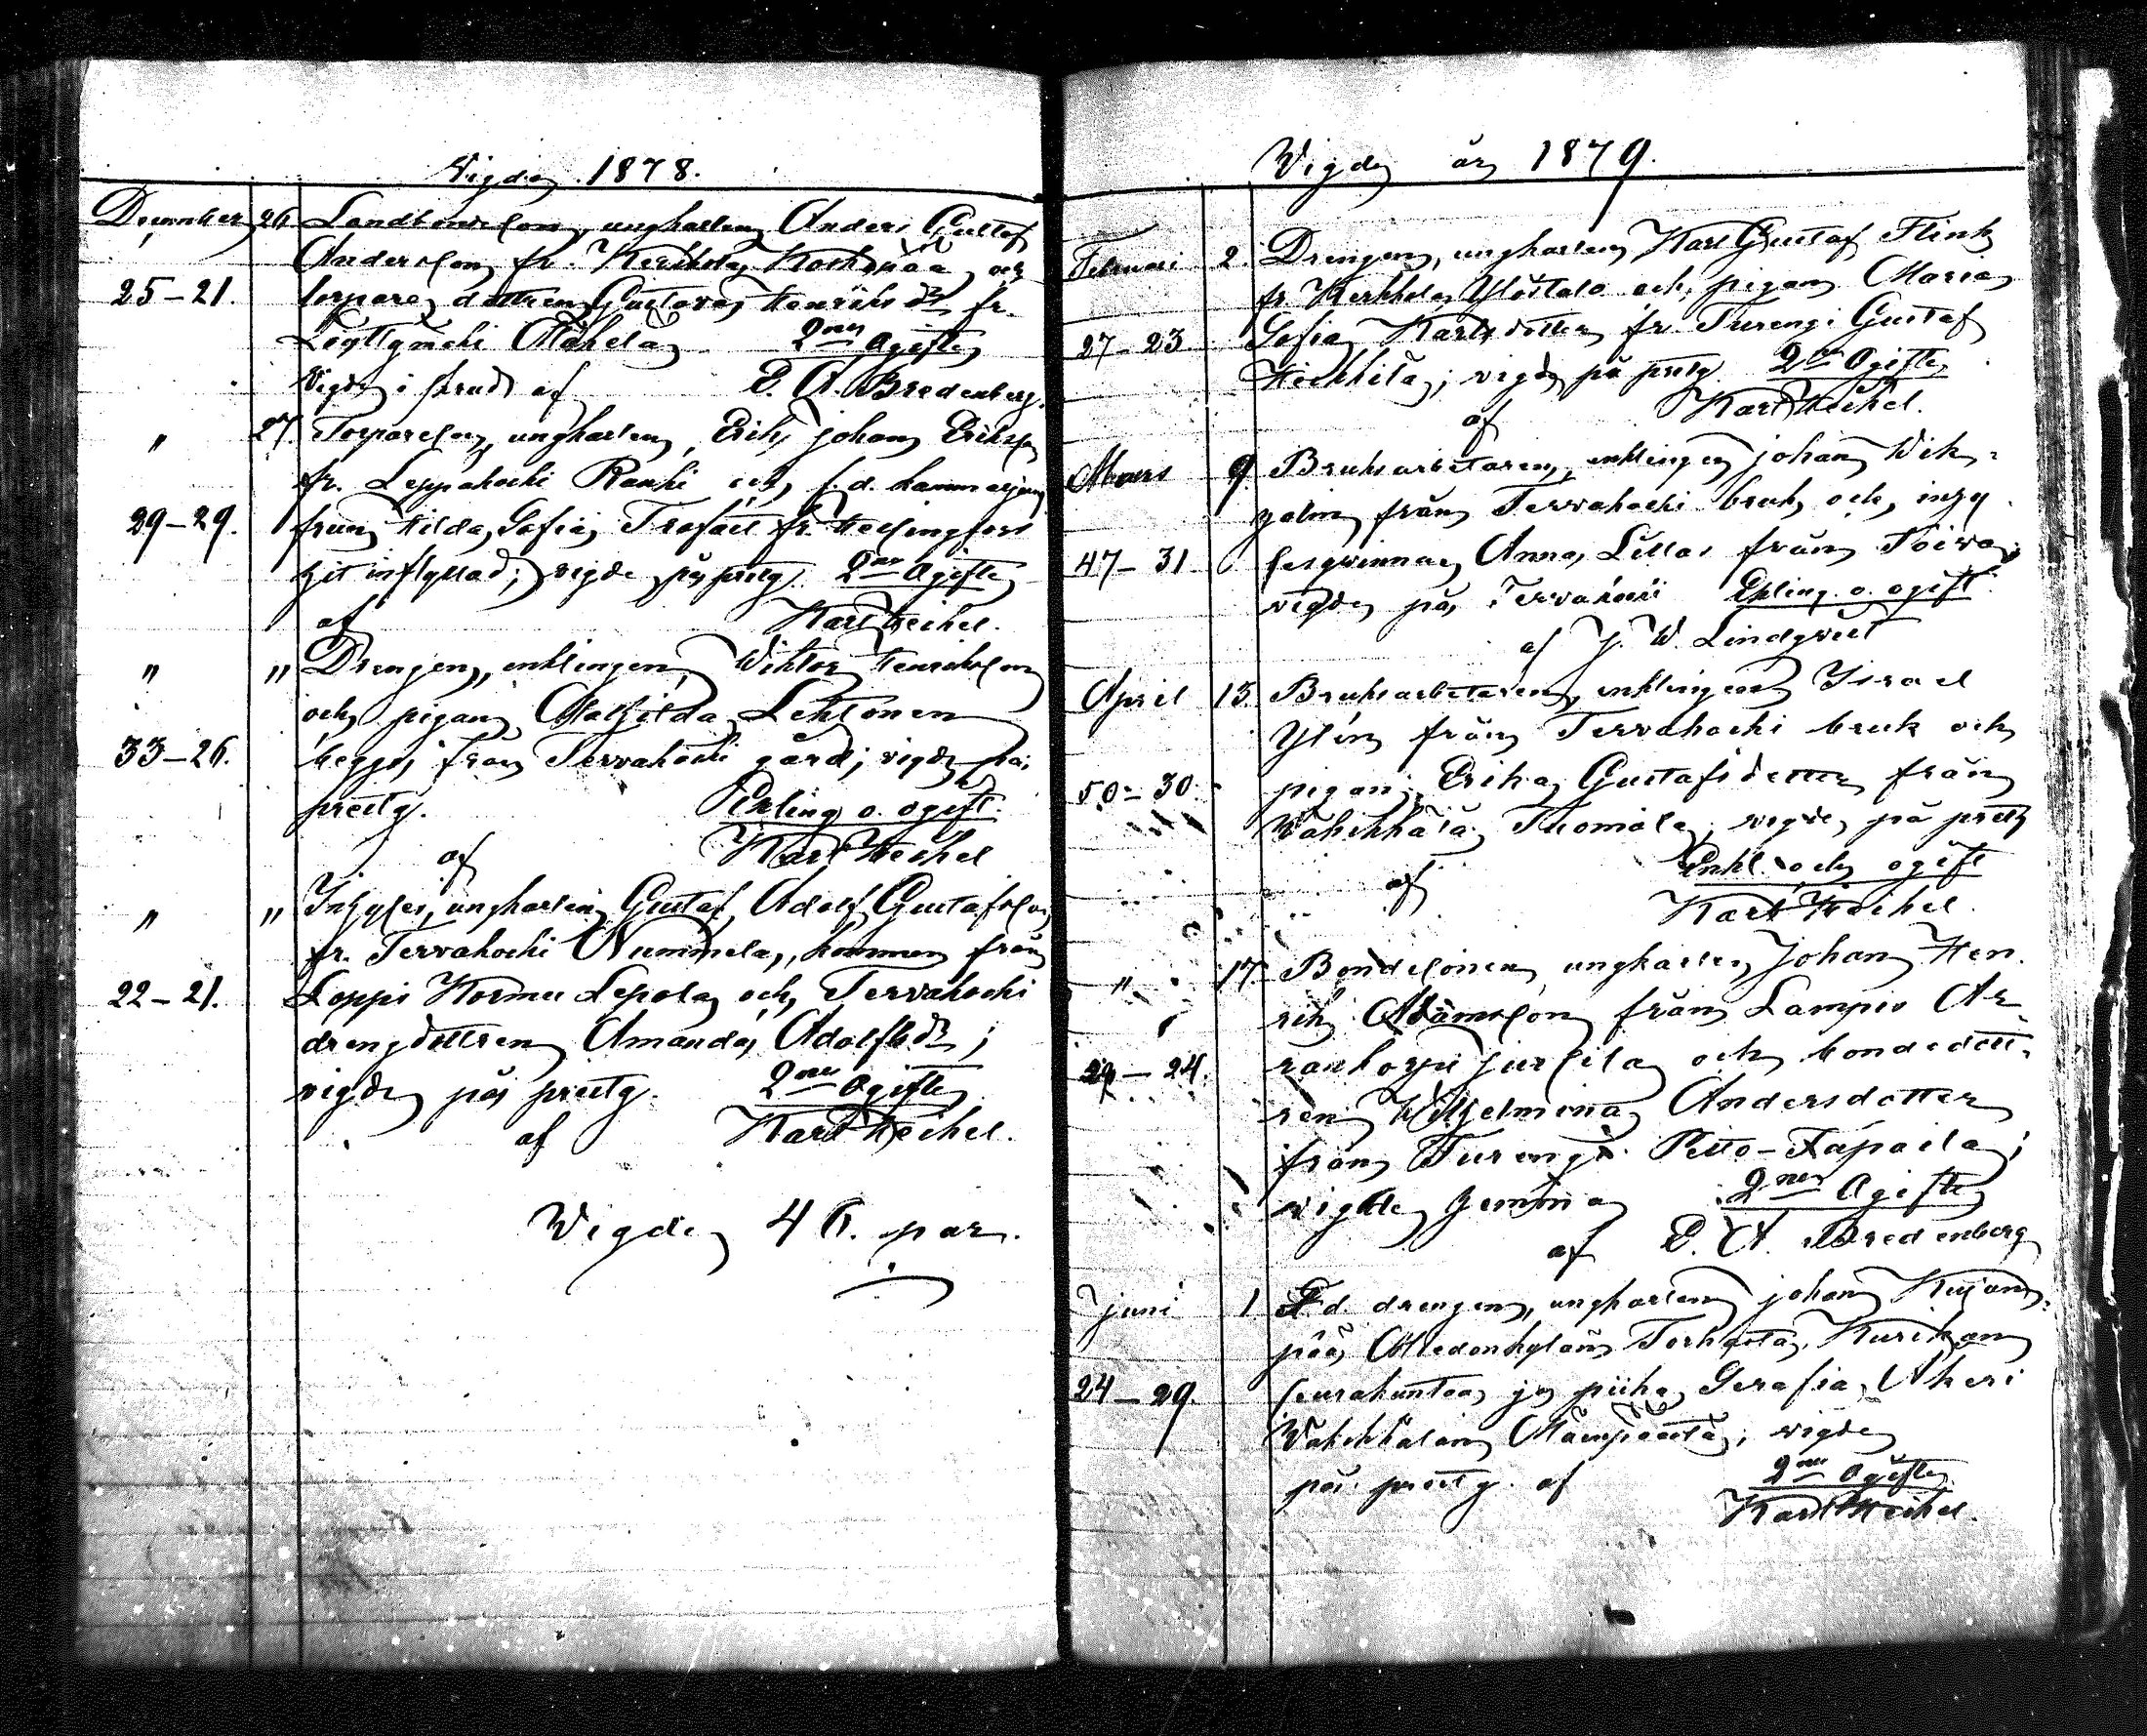 Vigde 1878.
December 26 Landbondeson, ungkarlen Anders Gustaf
Andersson fr. Kerkkola och
25-21. torpare dottren Gustava Henriksdr fr.
Löyttymäki Mäkelä 2ne Ogifte
Vigde i af E. A. Bredenberg.
" 27. Torpareson, ungkarlen Erik Johan Eriksson
fr. Leppäkoski Rauhi och f.d. kammarjung
29-29. frun Hilda Sofia fr. Helsingfors
hit inflyttad; vigde på prstg. 2ne Ogifte
af Karl Heikel.
" " Drengen, enklingen Wiktor Henriksson
och pigan Mathilda Lehtonen
33-26. begge från Tervakoski gård; vigde på
prestg. Enkling o. ogift.
af Karl Heikel
" " Inhyses, ungkarlen Gustaf Adolf Gustafsson
fr. Tervakoski Nummela, kommen från
22-21. Loppis Kormu Lepola och Tervakoski
drengdottren Amanda Adolfsdr;
vigde på prestg. 2ne Ogifte
af Karl Heikel.
Vigde 46. par.
Vigde år 1879.
Februari 2. Drengen, ungkarlen Karl Gustaf Flink
fr. Kerkkola Ylöstalo och pigan Maria
27-23 Sofia Karlsdotter fr. Turengi Gustaf
Heikkilä; vigde på prstg. 2ne Ogifte
af Karl Heikel.
Mars 9 Bruksarbetaren, enklingen Johan Wik-
från Tervakoski bruk och inhy
47-31 sesqvinnan Anna från Toivo
vigde på Tervakoski Enkling o. ogift.
af J. W. Lindqvist
April 15. Bruksarbetaren, enklingen Israel
Ylén från Tervakoski bruk och
50-30 pigan Erika Gustafsdotter från
Vähikkälä Tuomola; vigde på prestg
Enkl. och ogift
af Karl Heikel.
" 17 Bondesonen, ungkarlen Johan Hen-
rik Adamsson från Lampis
-24. och bondedott-
ren Wilhelmina Andersdotter
från Turengi ;
vigde hemma 2ne Ogifte
af E. A. Bredenberg
Juni 1 F. d. drengen, ungkarlen Johan Kujan-
pää, Miedonkylän Torkosta, Kurikan
24-29. seurakuntaa ja piika Serafia
Vähikkälän Mäenpäästä; vigde
på prestg. af 2ne Ogifte
Karl Heikel.